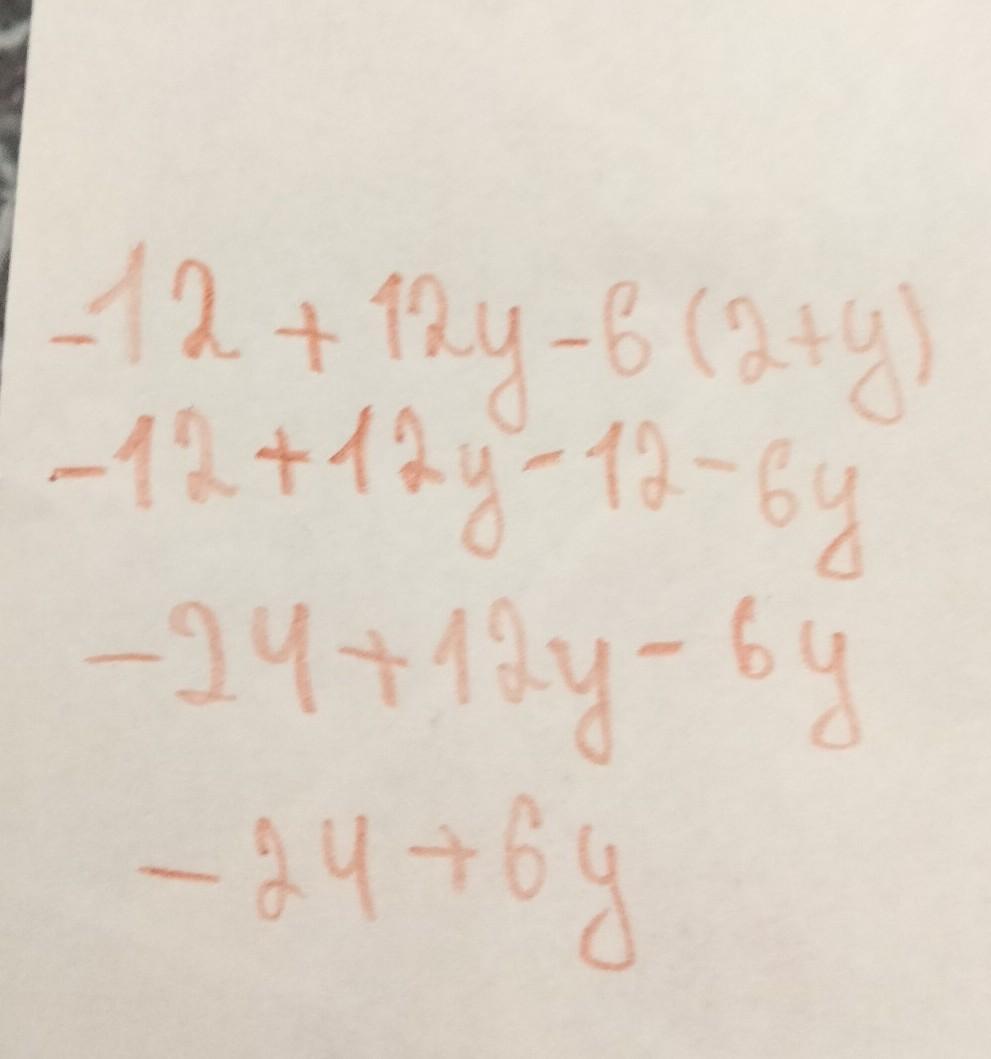 -12 + 12y - 6 (2+y)
-12 + 12y - 12 - 6y
- 24 + 12y - 6y
- 24 + 6y